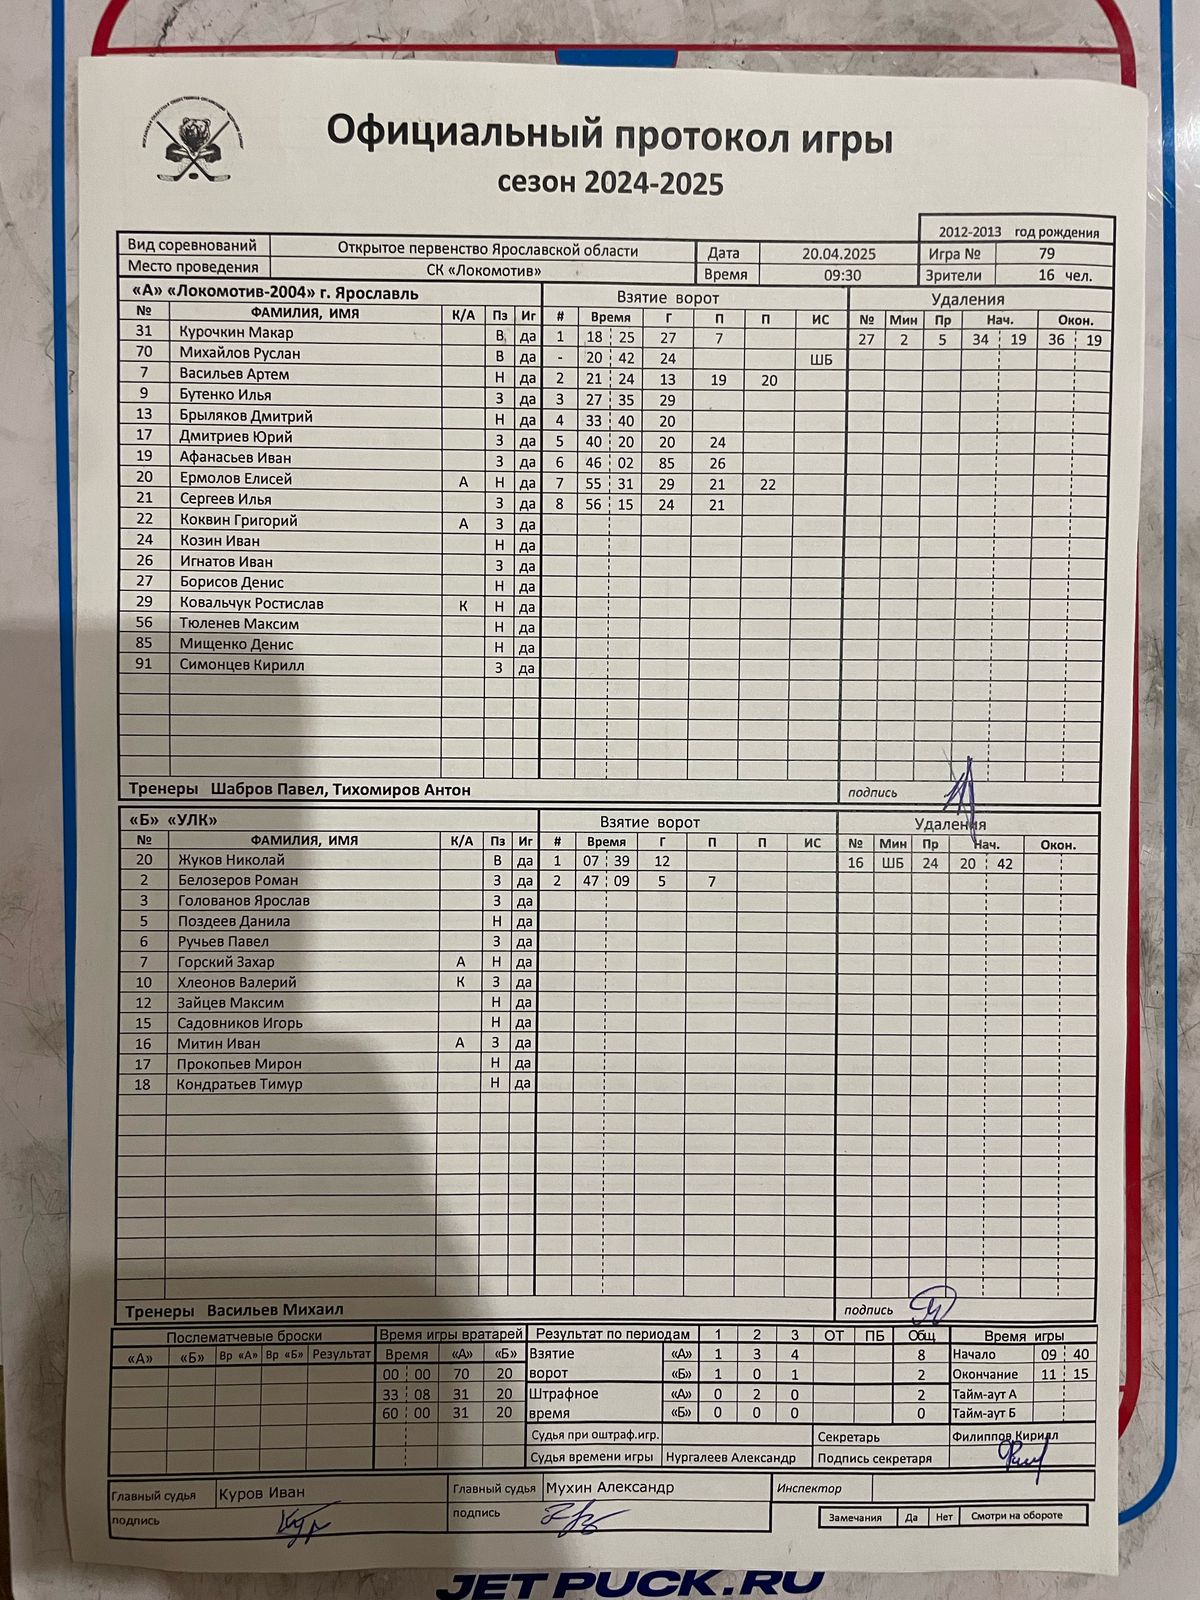 Официальный протокол игры
сезон 2024-2025
2012-2013 год рождения
Вид соревнований Открытое первенство Ярославской области Дата 20.04.2025 Игра № 79
Место проведения СК «Локомотив» Время 09:30 Зрители 16 чел.
«А» «Локомотив-2004» г. Ярославль Взятие ворот Удаления
№ ФАМИЛИЯ, ИМЯ К/А Пз Иг # Время Г П П ИС № Мин Пр Нач. Окон.
31 Курочкин Макар В да 1 18 25 27 7 27 2 5 34 19 36 19
70 Михайлов Руслан В да - 20 42 24 ШБ
7 Васильев Артем Н да 2 21 24 13 19 20
9 Бутенко Илья З да 3 27 35 29
13 Брыляков Дмитрий Н да 4 33 40 20
17 Дмитриев Юрий З да 5 40 20 20 24
19 Афанасьев Иван З да 6 46 02 85 26
20 Ермолов Елисей А Н да 7 55 31 29 21 22
21 Сергеев Илья З да 8 56 15 24 21
22 Коквин Григорий А З да
24 Козин Иван Н да
26 Игнатов Иван З да
27 Борисов Денис Н да
29 Ковальчук Ростислав К Н да
56 Тюленев Максим Н да
85 Мищенко Денис Н да
91 Симонцев Кирилл З да
Тренеры Шабров Павел, Тихомиров Антон подпись
«Б» «УЛК» Взятие ворот Удаления
№ ФАМИЛИЯ, ИМЯ К/А Пз Иг # Время Г П П ИС № Мин Пр Нач. Окон.
20 Жуков Николай В да 1 07 39 12 16 ШБ 24 20 42
2 Белозеров Роман З да 2 47 09 5 7
3 Голованов Ярослав З да
5 Поздеев Данила Н да
6 Ручьев Павел З да
7 Горский Захар А Н да
10 Хлеонов Валерий К З да
12 Зайцев Максим Н да
15 Садовников Игорь Н да
16 Митин Иван А З да
17 Прокопьев Мирон Н да
18 Кондратьев Тимур Н да
Тренеры Васильев Михаил подпись
Послематчевые броски Время игры вратарей Результат по периодам 1 2 3 ОТ ПБ Общ Время игры
«А» «Б» Вр «А» Вр «Б» Результат Время «А» «Б» Взятие «А» 1 3 4 8 Начало 09 40
00 00 70 20 ворот «Б» 1 0 1 2 Окончание 11 15
33 08 31 20 Штрафное «А» 0 2 0 2 Тайм-аут А
60 00 31 20 время «Б» 0 0 0 0 Тайм-аут Б
Судья при оштраф.игр. Секретарь Филиппов Кирилл
Судья времени игры Нургалеев Александр Подпись секретаря
Главный судья Куров Иван Главный судья Мухин Александр Инспектор
подпись подпись Замечания Да Нет Смотри на обороте
JETPUCK.RU